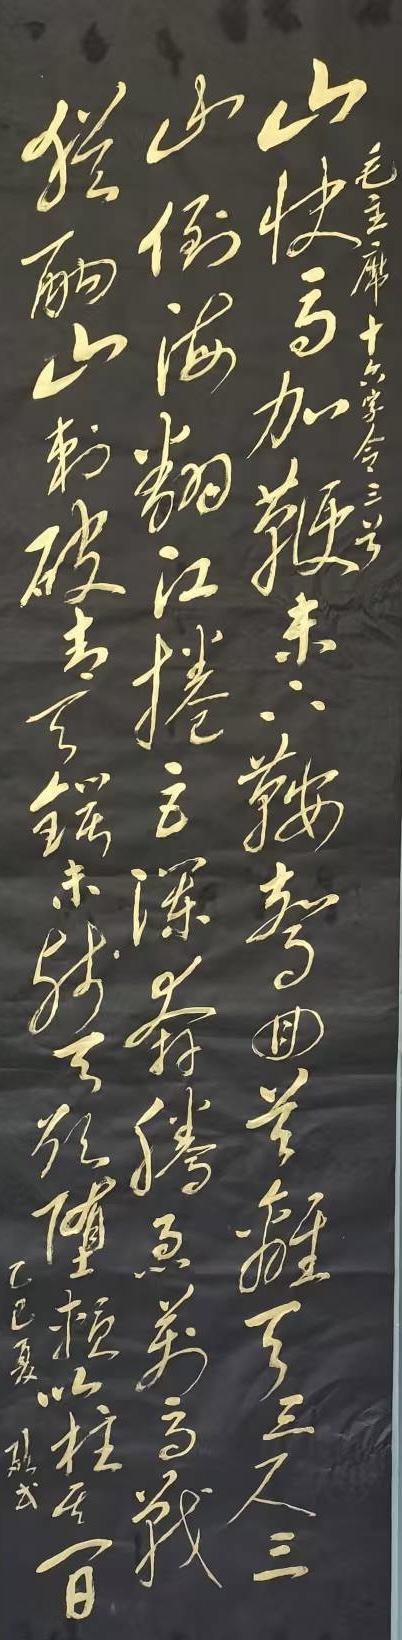 毛主席十六字令三首
山快马加鞭未下鞍驚回首離天三尺三
山倒海翻江捲巨瀾奔騰急萬马戰
猶酣山刺破青天鍔未残天欲墮賴以柱其间
乙巳夏